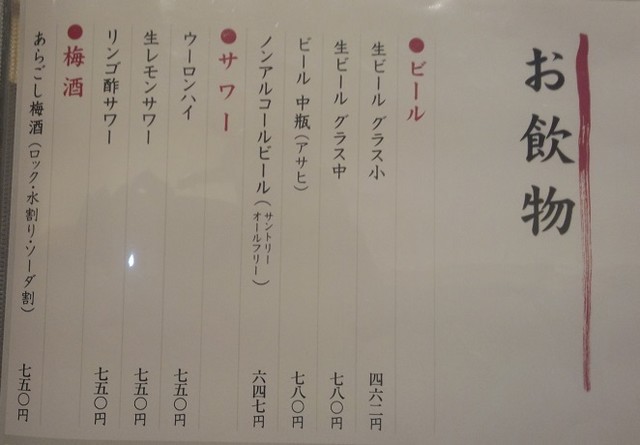 お飲物
●ビール
生ビール グラス小 四六二円
生ビール グラス中 七八〇円
ビール 中瓶（アサヒ） 七八〇円
ノンアルコールビール（サントリーオールフリー） 六四七円
●サワー
ウーロンハイ 七五〇円
生レモンサワー 七五〇円
リンゴ酢サワー 七五〇円
●梅酒
あらごし梅酒（ロック・水割り・ソーダ割） 七五〇円